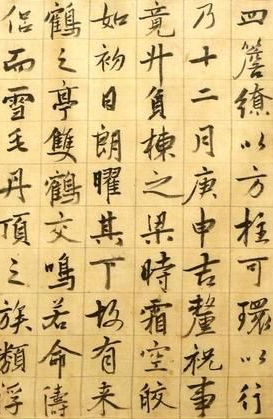 四簷繚以方柱可環以行
乃十二月庚申吉釐祝事
竟廾負棟之梁時霜空皎
如初日朗曜其下故有来
鶴之亭雙鶴交鳴若命濤
侣而雪毛丹頂之族纇浮